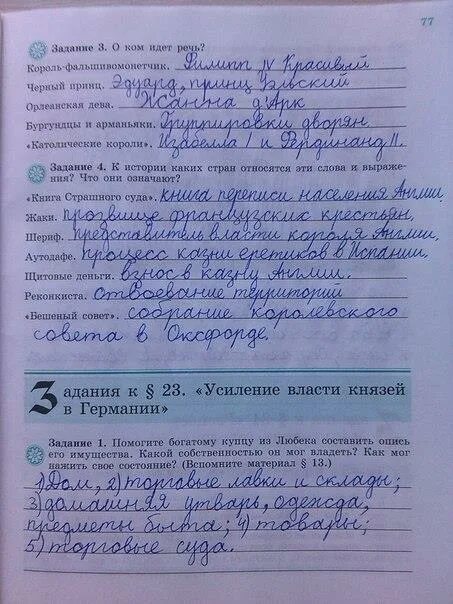 77
Задание 3. О ком идет речь?
Король-фальшивомонетчик. Филипп IV Красивый
Черный принц. Эдуард, принц Уэльский
Орлеанская дева. Жанна д'Арк
Бургундцы и арманьяки. Группировки дворян.
«Католические короли». Изабелла I и Фердинанд II.
Задание 4. К истории каких стран относятся эти слова и выраже-
ния? Что они означают?
«Книга Страшного суда». книга переписи населения Англии.
Жаки. прозвище французских крестьян.
Шериф. представитель власти короля Англии.
Аутодафе. процесс казни еретиков в Испании.
Щитовые деньги. взнос в казну Англии.
Реконкиста. отвоевание территорий
«Бешеный совет». собрание королевского
совета в Оксфорде.
Задания к § 23. «Усиление власти князей
в Германии»
Задание 1. Помогите богатому купцу из Любека составить опись
его имущества. Какой собственностью он мог владеть? Как мог
нажить свое состояние? (Вспомните материал § 13.)
1) Дом, 2) торговые лавки и склады;
3) домашняя утварь, одежда,
предметы быта; 4) товары;
5) торговые суда.